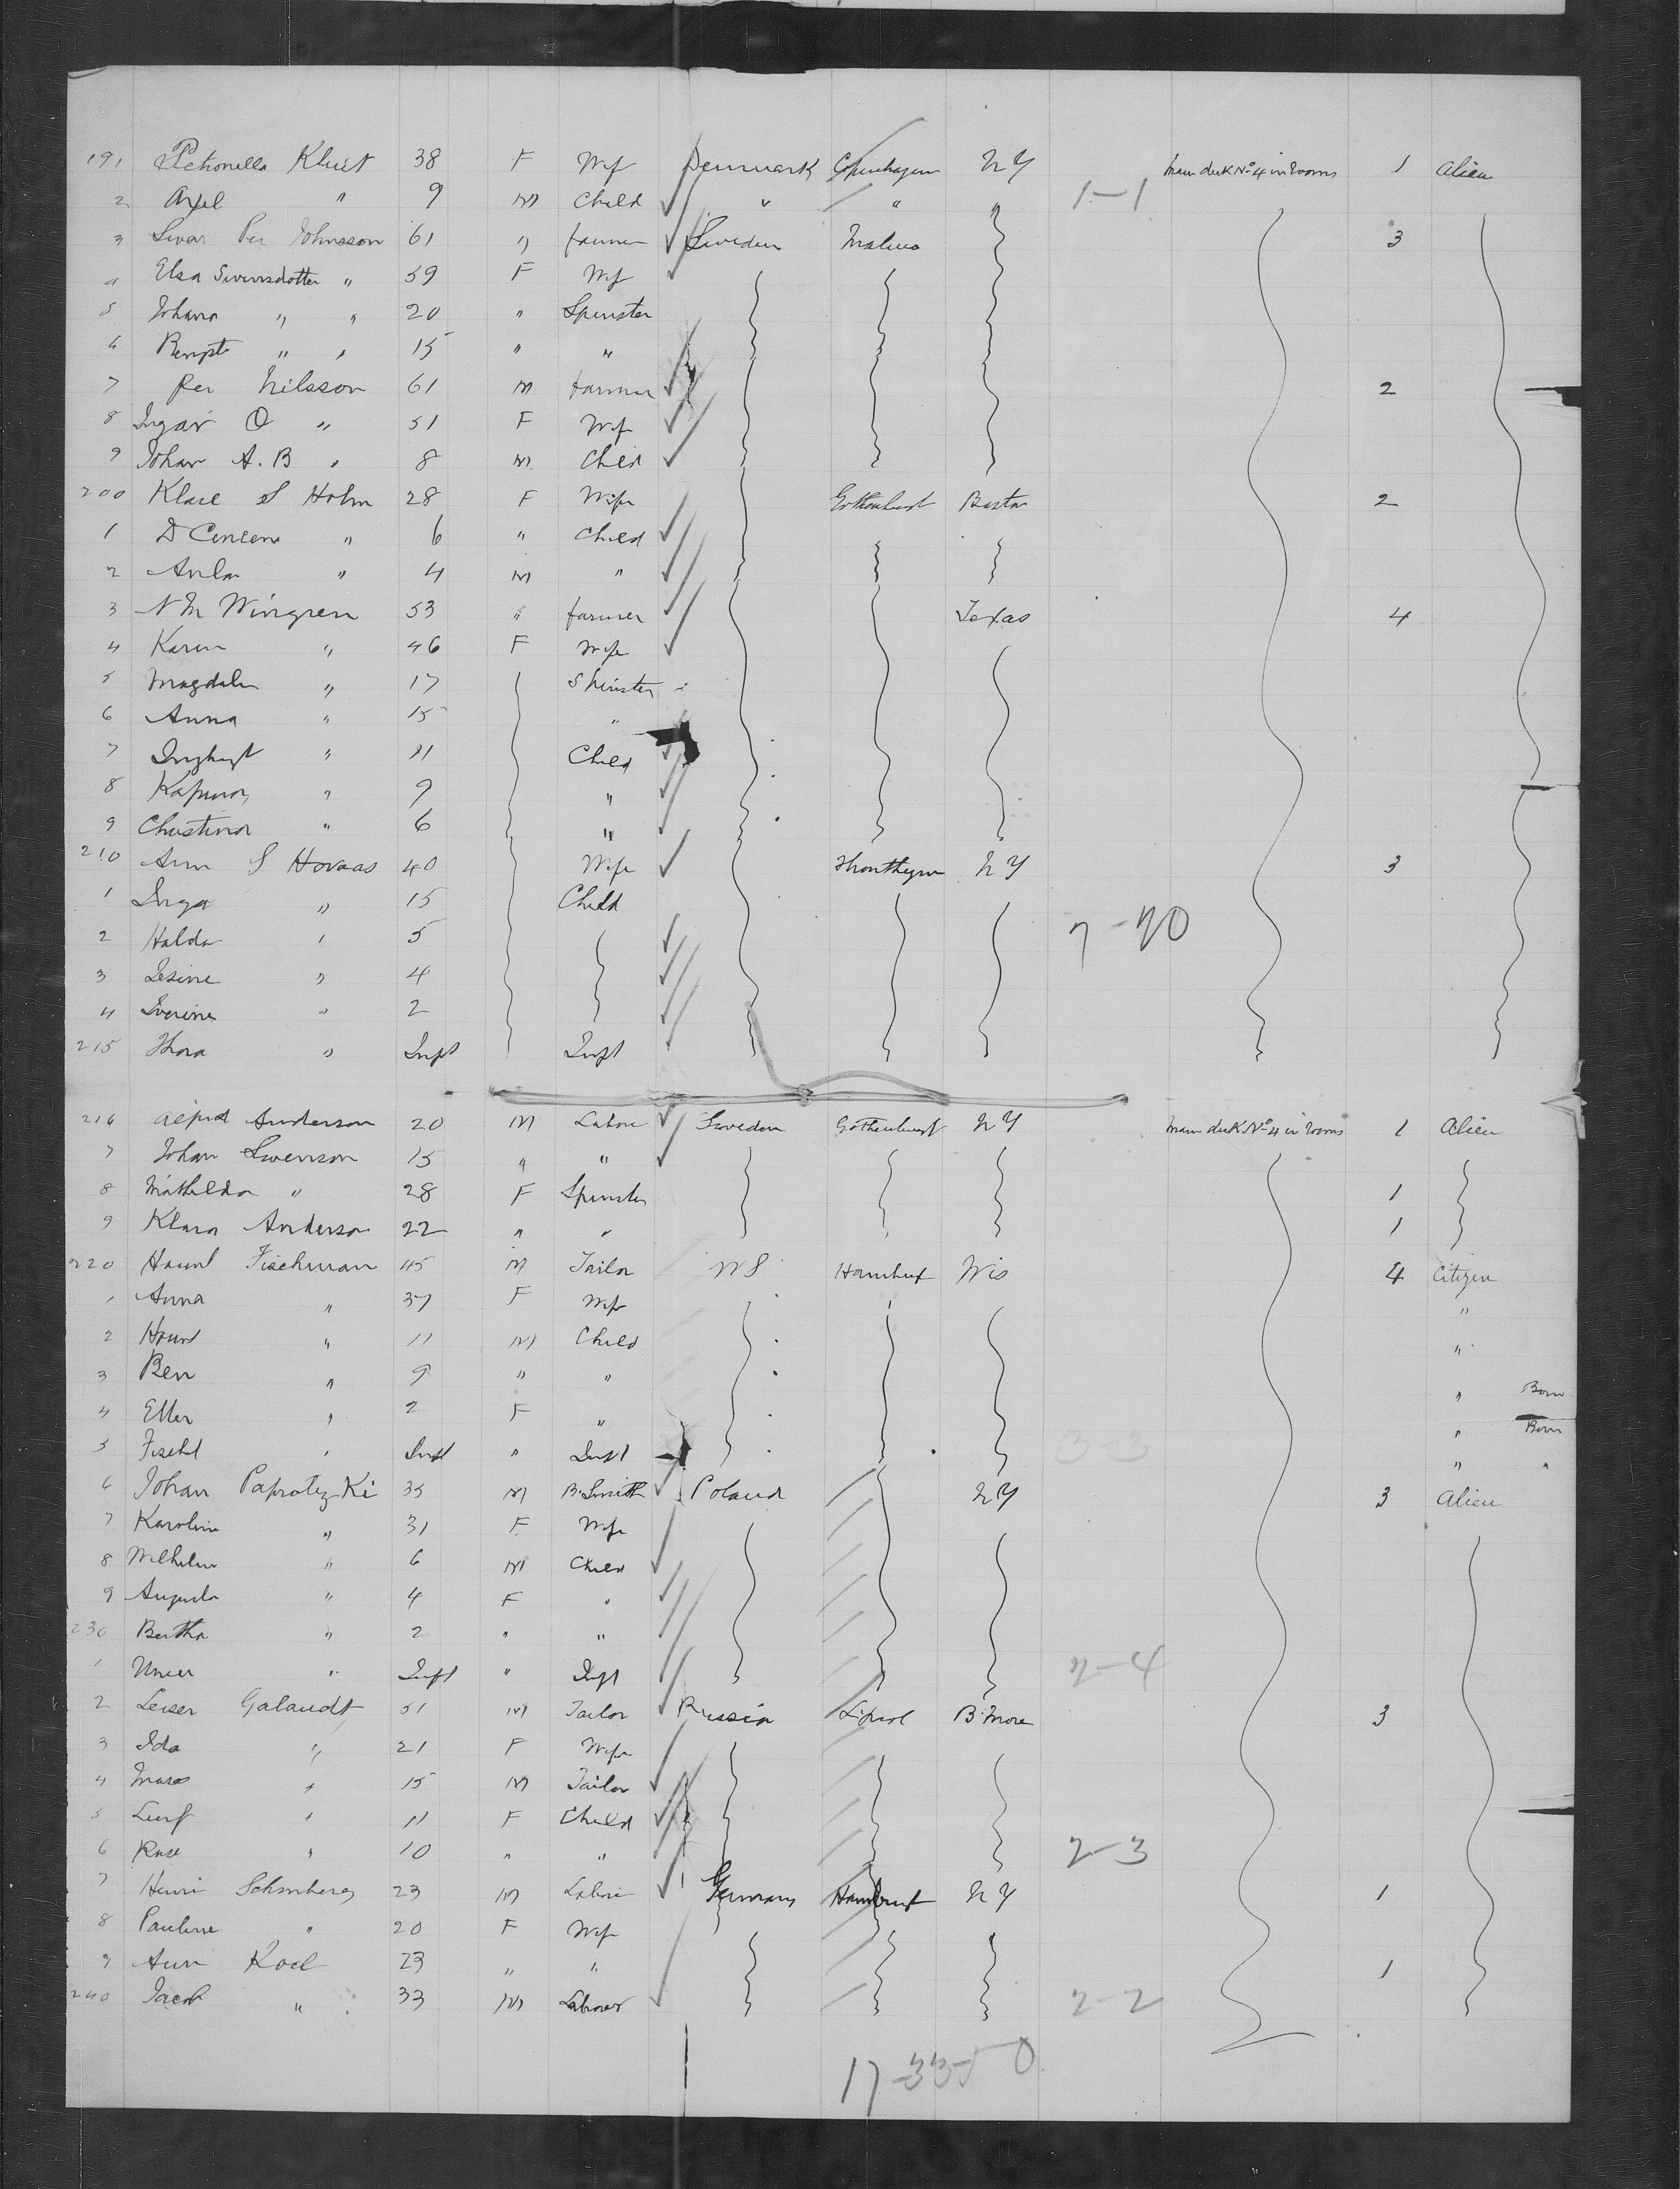 191 Petronella Kluit 38 F Wif Denmark Copenhagen NY Main deck No 4 in rooms 1 Alien
2 Axel " 9 M Child " " " 1-1
3 Swar Per Johnsson 61 " farmer Sweden Malmo 3
4 Elsa Swensdotter " 59 F Wif
5 Johana " " 20 " Spinster
6 Bengta " " 15 " "
7 Per Nilsson 61 M farmer 2
8 Ingar O " 51 F Wife
9 Johan A. B " 8 M Child
200 Klare S Holm 28 F Wife Gothenburg Boston 2
1 D " 6 " Child
2 " 4 M "
3 N M Wingren 53 " farmer Texas 4
4 Karin " 46 F Wife
5 Magdalen " 17 Spinster
6 Anna " 15 "
7 " 11 Child
8 " 9 "
9 Christina " 6 "
210 Ann S Hovaas 40 Wife NY 3
1 Inga " 15 Child 7-20
2 Halda " 5
3 Lesine " 4
4 Iverine " 2
215 Thora " Inft Inft
216 Alfred Anderson 20 M Labore Sweden Gothenburg NY Main deck No 4 in rooms 1 Alien
7 Johan Swenson 15 " "
8 Mathilda " 28 F Spinster 1
9 Klara Anderson 22 " " 1
220 Fischman 45 M Tailor US Hamburg Wis 4 Citizen
1 Anna " 37 F Wife "
2 " 11 M Child "
3 Ben " 9 " " " Born
4 Ellen " 2 F " " Born
5 Fischl " Inft " Inft 3-3 " "
6 Johan Paprotzki 35 M B.Smith Poland NY 3 Alien
7 Karoline " 31 F Wife
8 Wilhelm " 6 M Child
9 Augusta " 4 F "
230 Bertha " 2 " "
1 " Inft " Inft 2-4
2 Leiser Galaudt 51 M Tailor Russia L'pool B'More 3
3 Ida " 21 F Wife
4 " 15 M Tailor
5 " 11 F Child
6 Rose " 10 " " 2-3
7 Henri Schonberg 23 M Labore Germany Hamburg NY 1
8 Pauline " 20 F Wife
9 Ann Koel 23 " " 1
240 Jacob " 33 M Laborer 2-2
17-33-0